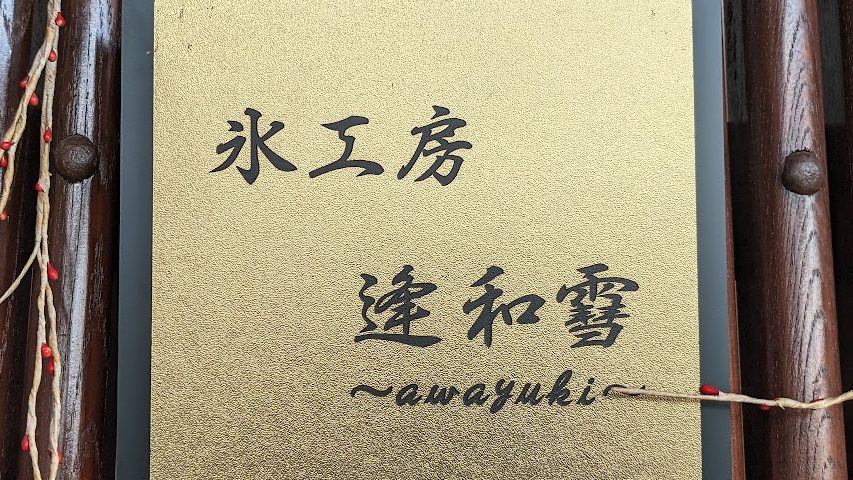 氷工房
逢和雪
～awayuki～